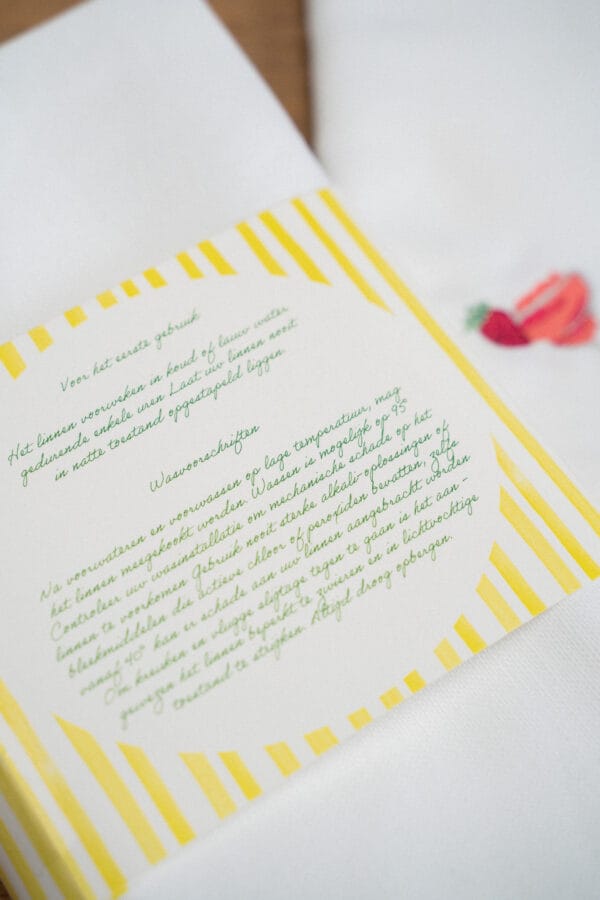 Voor het eerste gebruik
Het linnen voorweken in koud of lauw water
gedurende enkele uren Laat uw linnen nooit
in natte toestand opgestapeld liggen.
Wasvoorschriften
Na voorwateren en voorwassen op lage temperatuur, mag
het linnen meegekookt worden. Wassen is mogelijk op 95°
Controleer uw wasinstallatie om mechanische schade op het
linnen te voorkomen Gebruik nooit sterke alkali-oplossingen of
bleekmiddelen die actieve chloor of peroxiden bevatten, zelfs
vanaf 40° kan er schade aan uw linnen aangebracht worden
Om kreuken en vlugge slijtage tegen te gaan is het aan-
gewezen het linnen beperkt te zwieren en in lichtvochtige
toestand te strijken. Altijd droog opbergen.